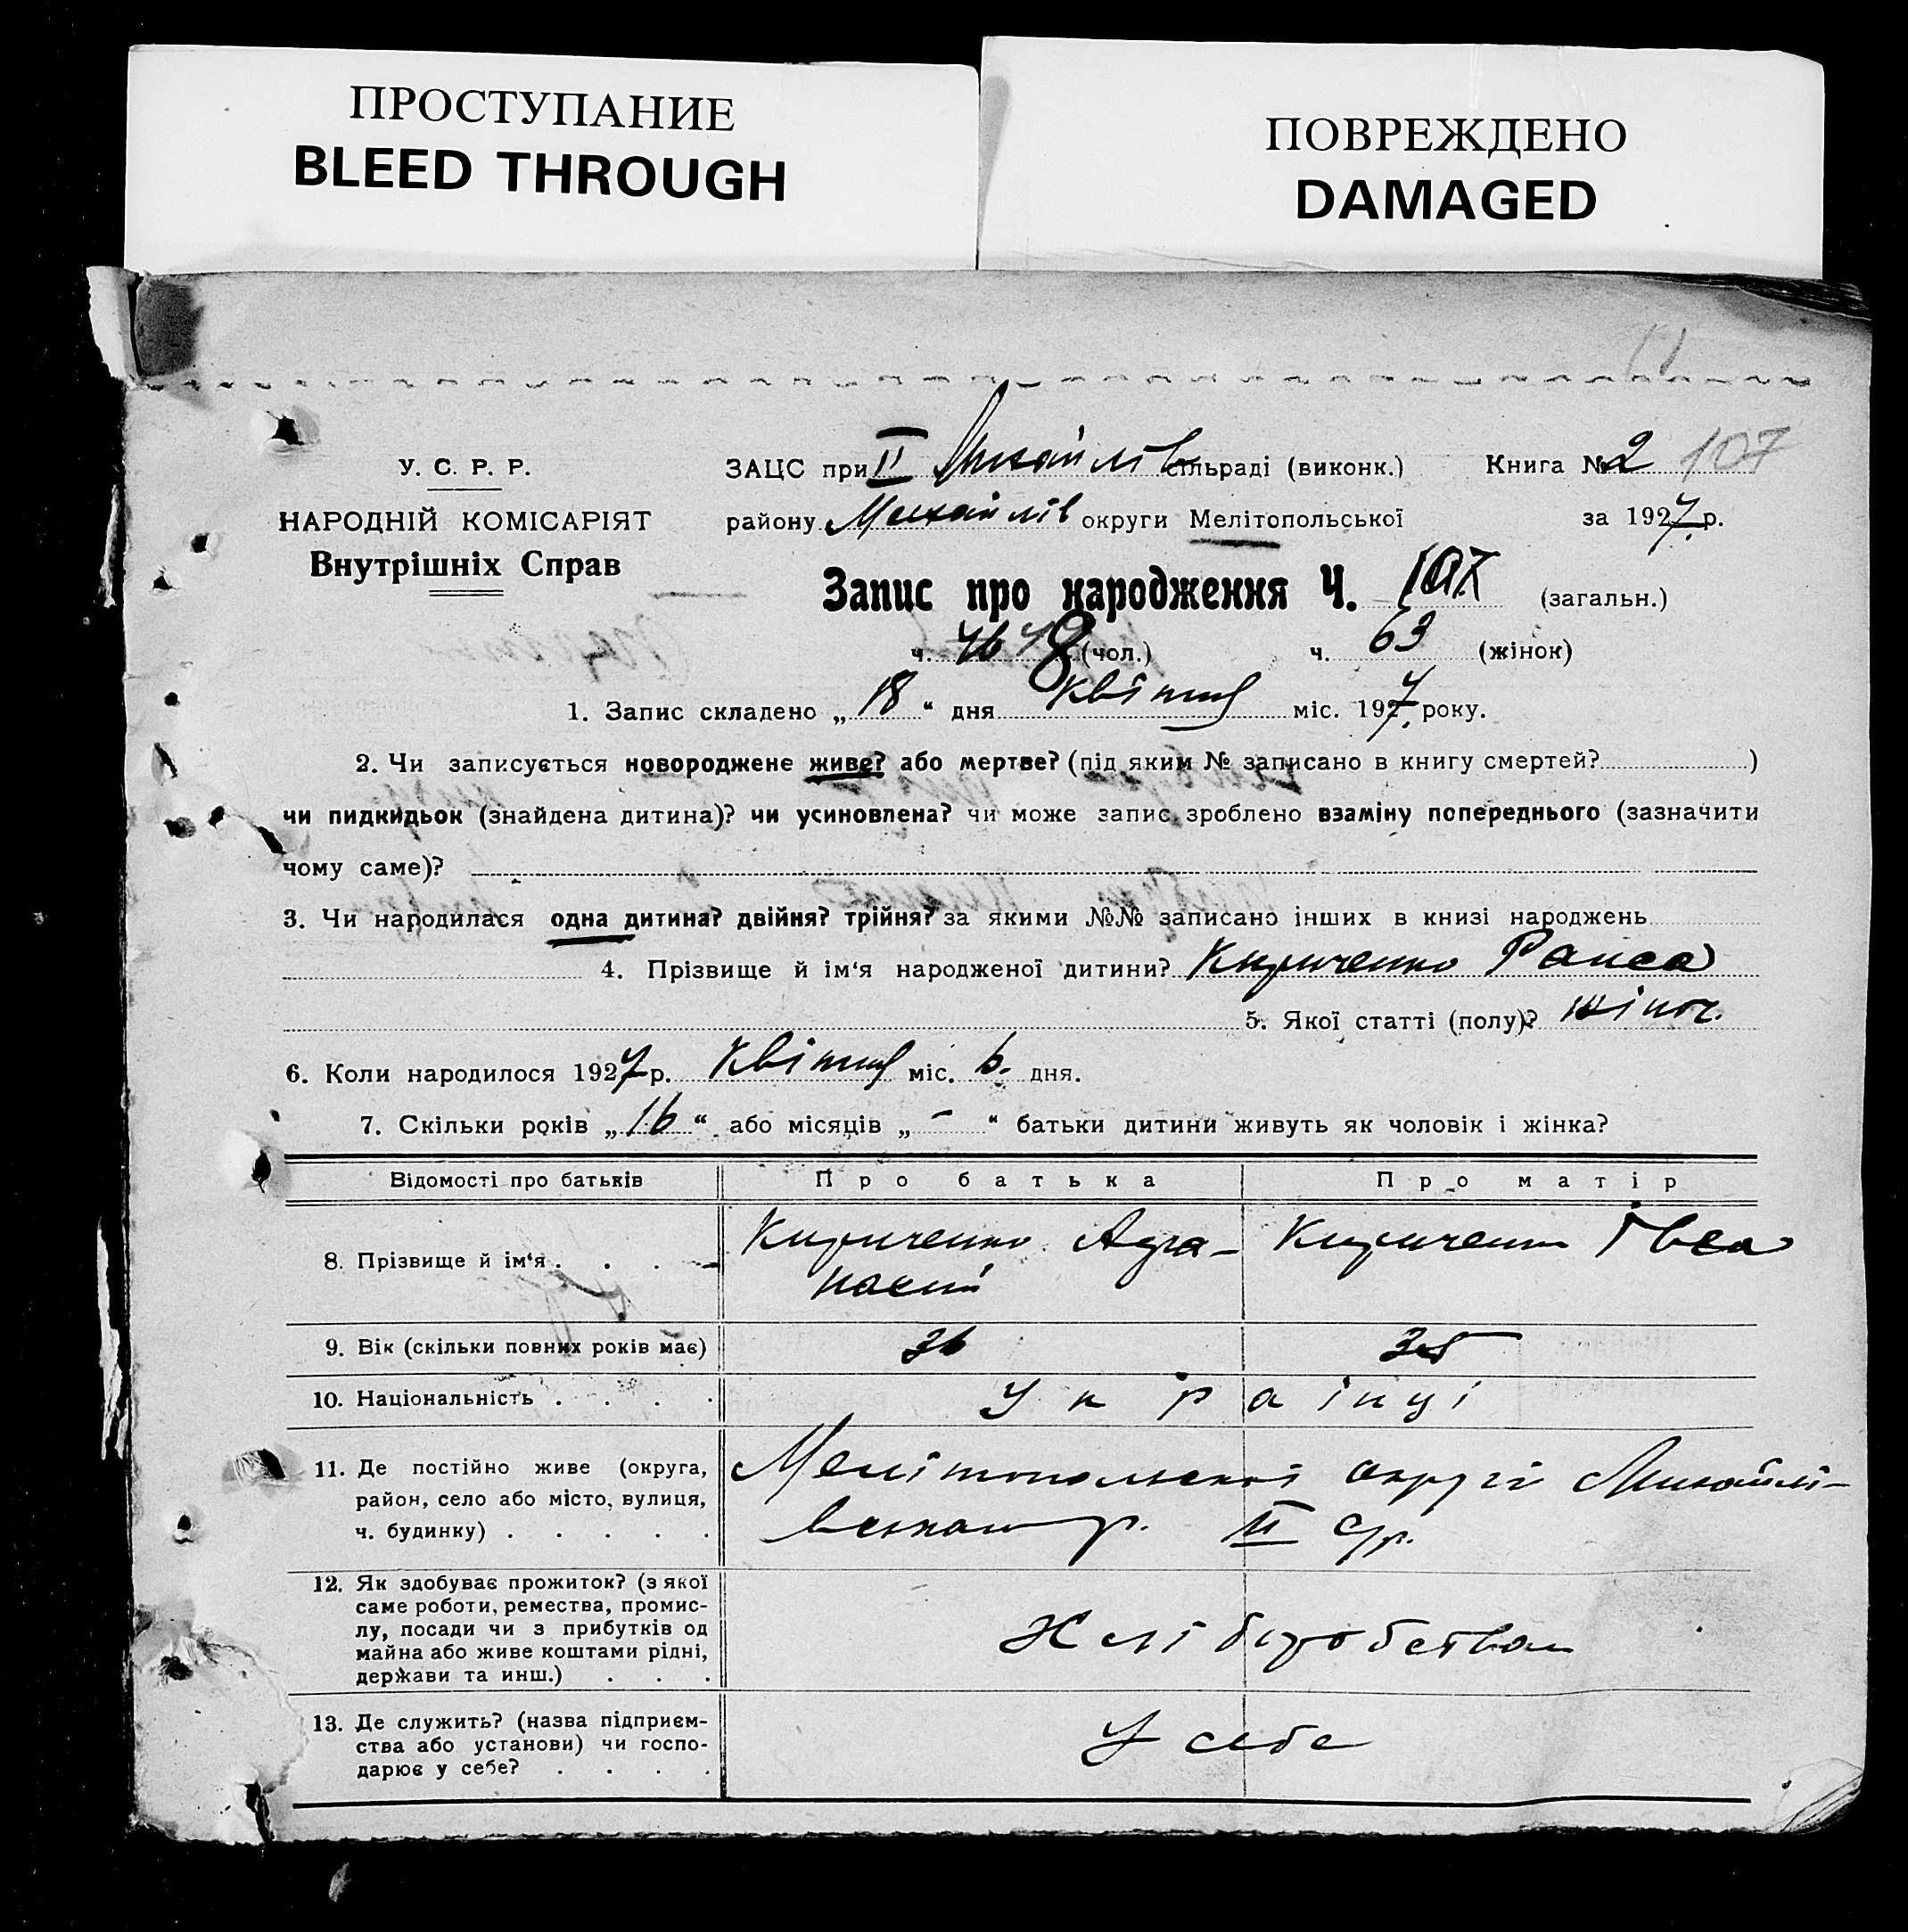 ПРОСТУПАНИЕ
BLEED THROUGH
ПОВРЕЖДЕНО
DAMAGED
У. С. Р. Р.
НАРОДНІЙ КОМІСАРІЯТ
Внутрішніх Справ
ЗАЦС при II Михайлів сільраді (виконк.) Книга № 2 107
району Михайлів округи Мелітопольської за 1927 р.
Запис про народження Ч. 107 (загальн.)
ч. (чол.) ч. 63 (жінок)
1. Запис складено „ 18 “ дня квітня міс. 1927 року.
2. Чи записується новороджене живе? або мертве? (під яким № записано в книгу смертей? )
чи пидкидьок (знайдена дитина)? чи усиновлена? чи може запис зроблено взаміну попереднього (зазначити
чому саме)?
3. Чи народилася одна дитина? двійня? трійня? за якими №№ записано інших в книзі народжень
4. Прізвище й ім‘я народженої дитини? Кириченко Раиса
5. Якої статті (полу)? жіноч.
6. Коли народилося 1927 р. Квітня міс. 6. дня.
7. Скільки років „ 16 “ або місяців „ – “ батьки дитини живуть як чоловік і жінка?
Відомості про батьків Про батька Про матір
8. Прізвище й ім‘я . . . . Кириченко Афа- Кириченко
насий
9. Вік (скільки повних років має) 36 35
10. Національність . . . . Українці
11. Де постійно живе (округа, Мелітопольскої округи Михайлі-
район, село або місто, вулиця, р. II с/р.
ч. будинку) . . . . .
12. Як здобуває прожиток? (з якої
саме роботи, ремества, промис-
лу, посади чи з прибутків од Хліборобством
майна або живе коштами рідні,
держави та инш.) . . .
13. Де служить? (назва підприєм-
ства або установи) чи госпо- У себе
дарює у себе? . . . .